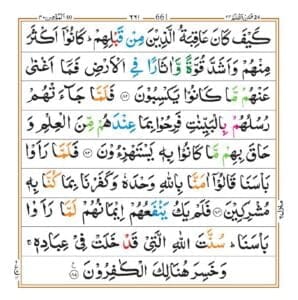 661
كَيْفَ كَانَ عَاقِبَةُ الَّذِيْنَ مِنْ قَبْلِهِمْ ؕ كَانُوْۤا اَكْثَرَ
مِنْهُمْ وَاَشَدَّ قُوَّةً وَّاٰثَارًا فِى الْاَرْضِ فَمَاۤ اَغْنٰى
عَنْهُمْ مَّا كَانُوْا يَكْسِبُوْنَ ﴿۸۲﴾ فَلَمَّا جَآءَتْهُمْ
رُسُلُهُمْ بِالْبَيِّنٰتِ فَرِحُوْا بِمَا عِنْدَهُمْ مِّنَ الْعِلْمِ وَ
حَاقَ بِهِمْ مَّا كَانُوْا بِهٖ يَسْتَهْزِءُوْنَ ﴿۸۳﴾ فَلَمَّا رَاَوْا
بَاْسَنَا قَالُوْۤا اٰمَنَّا بِاللّٰهِ وَحْدَهٗ وَكَفَرْنَا بِمَا كُنَّا بِهٖ
مُشْرِكِيْنَ ﴿۸۴﴾ فَلَمْ يَكُ يَنْفَعُهُمْ اِيْمَانُهُمْ لَمَّا رَاَوْا
بَاْسَنَا ؕ سُنَّتَ اللّٰهِ الَّتِىْ قَدْ خَلَتْ فِىْ عِبَادِهٖ ۚ
وَخَسِرَ هُنَالِكَ الْكٰفِرُوْنَ ﴿۸۵﴾